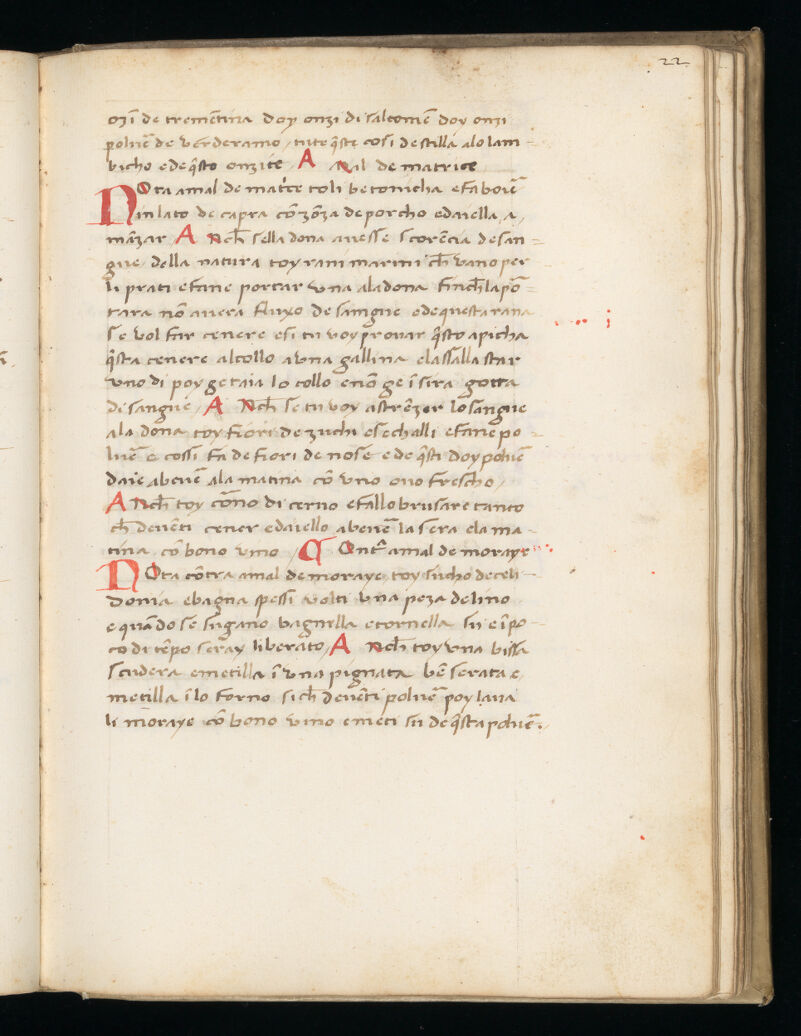 22
ozi de trementina doy onzi di salcomē doy onzi
polvē de verderamo, tute q̄ste cosi destilla alo lam-
bicho e de q̄sto onzite, A Al mal de matrice
NOta amal de matrice toli betonicha e fa boire
in lato de capra cō zōza de porcho e daiella, a,
māzar, A Nch̄ sella dona avesse scorēcia de san-
gue della natura toy rani marini ch̄ vano per
li prati e fane portar una ala dona finch̄ la por-
tara nō avera fluxo de sangue e de questa rana
se vol far cenere e si tu voy provar q̄sto apicha
q̄sta cenere al collo a una gallina e lassalla star
uno di poy ge taia lo collo e nō ge isira gotta
de sangue, A Nch̄ se tu voy astrēzer lo sangue
ala dona toy fiori de zuchi e sechalli e fane po-
lvē e cossi fa de fiori de nose e de q̄sti doy polvē
daie a bevē ala matina cō uno ovo frescho,
A Nch̄ toy corno di cervo e fallo brusare tanto
ch̄ devēti cener e daiello a bevē la sera e la ma-
tina cō bono vino, COntra mal de moraye
NOta cōtra amal de moraye toy sucho de celi-
donia e bagna spessi volti una peza de lino
e quādo se sugano bagnella e tornella su e ī po-
co di tēpo seray liberato, A Nch̄ toy una bissa
scudera e metilla ī una pignata bē serata e
metilla ī lo forno sich̄ devēti polvē poy lava
li moraye cō bono vino e meti su de q̄sta polvē.